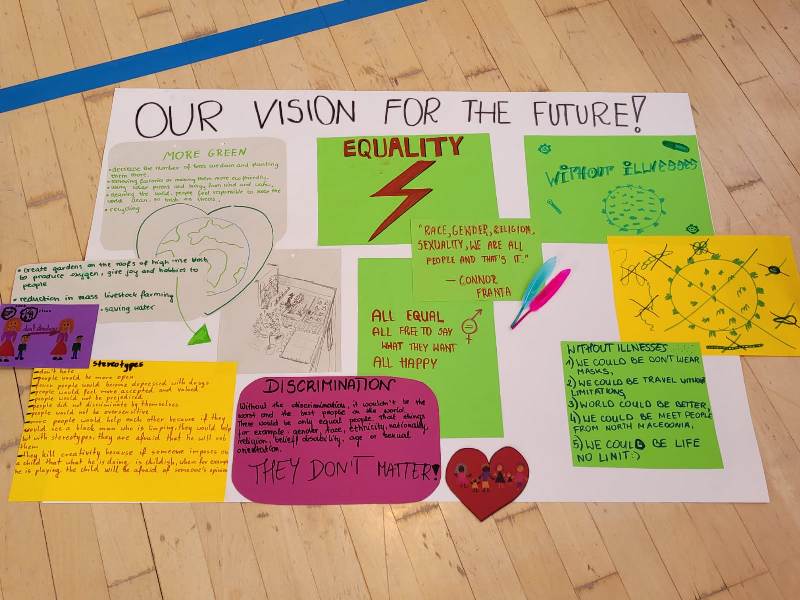 OUR VISION FOR THE FUTURE!
MORE GREEN
• decrease the number of trees cut down and planting
them more,
• removing factories or making them more eco-friendly,
• using solar panels and living from wind and water,
• cleaning the world, people feel responsible to keep the
world clean, no trash on streets,
• recycling
• create gardens on the roofs of high-rise blocks
to produce oxygen, give joy and hobbies to
people
• reduction in mass livestock farming
• saving water
EQUALITY
"RACE, GENDER, RELIGION,
SEXUALITY, WE ARE ALL
PEOPLE AND THAT'S IT."
— CONNOR
FRANTA
ALL EQUAL
ALL FREE TO SAY
WHAT THEY WANT
ALL HAPPY
WITHOUT ILLNESSES
WITHOUT ILLNESSES
1) WE COULD BE DON'T WEAR
MASKS,
2) WE COULD BE TRAVEL WITHOUT
LIMITATIONS,
3) WORLD COULD BE BETTER,
4) WE COULD BE MEET PEOPLE
FROM NORTH MACEDONIA,
5) WE COULD BE LIFE
NO LIMIT :)
stereotypes
don't hate
people would be more open
fewer people would become depressed with drugs
people would feel more accepted and valued
people would not be prejudiced
people did not discriminate by themselves
people would not be oversensitive
more people would help each other because if they
would see a black man who is limping, they would help
but with stereotypes, they are afraid that he will rob
them
They kill creativity because if someone imposes on
a child that what he is doing is childish, when for example
he is playing, the child will be afraid of someone's opinion
DISCRIMINATION
Without the discrimination, it wouldn't be the
worst and the best people on the world.
There would be only equal people. That things
for example: gender, race, ethnicity, nationality,
religion, belief disability, age or sexual
orientation.
THEY DON'T MATTER!